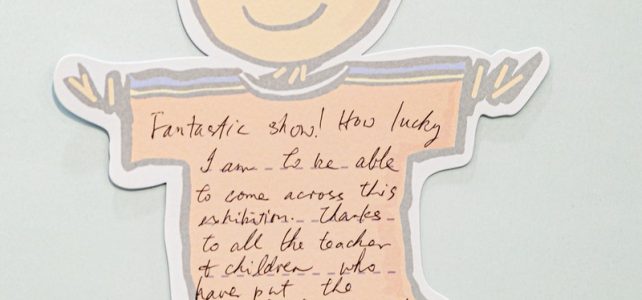 Fantastic show! How lucky
I am to be able
to come across this
exhibition. Thanks
to all the teacher
& children who
have put the